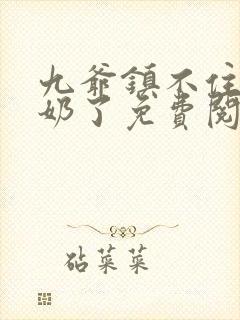 九爷镇不住
奶了免费阅
砧菜菜